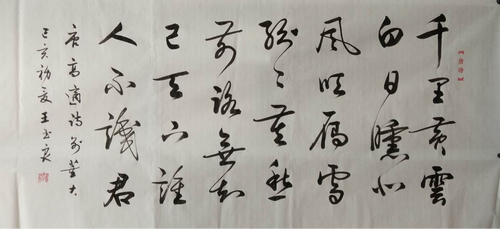 千里黃雲
白日曛北
風吹雁雪
紛〻莫愁
前路無知
己天下誰
人不識君
唐高適詩別董大
己亥初夏王玉